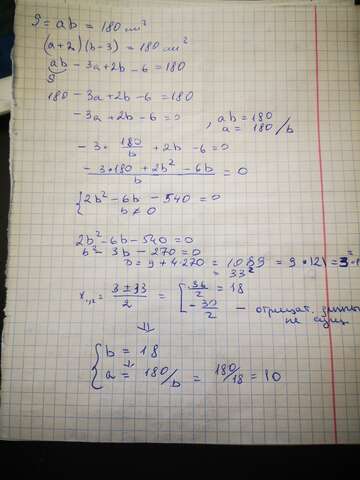 S = ab = 180 см²
(a+2)(b-3) = 180 см²
ab - 3a + 2b - 6 = 180
S
180 - 3a + 2b - 6 = 180
- 3a + 2b - 6 = 0 , ab = 180
a = 180/b
- 3 · 180/b + 2b - 6 = 0
(-3·180 + 2b² - 6b)/b = 0
{ 2b² - 6b - 540 = 0
b ≠ 0
2b² - 6b - 540 = 0
b² - 3b - 270 = 0
D = 9 + 4·270 = 1089 = 9 · 121 = 3²
= 33²
x₁,₂ = (3 ± 33)/2 = [ 36/2 = 18
- 30/2 — отрицат. длины
не сущ.
⇓
{ b = 18
a = 180/b = 180/18 = 10